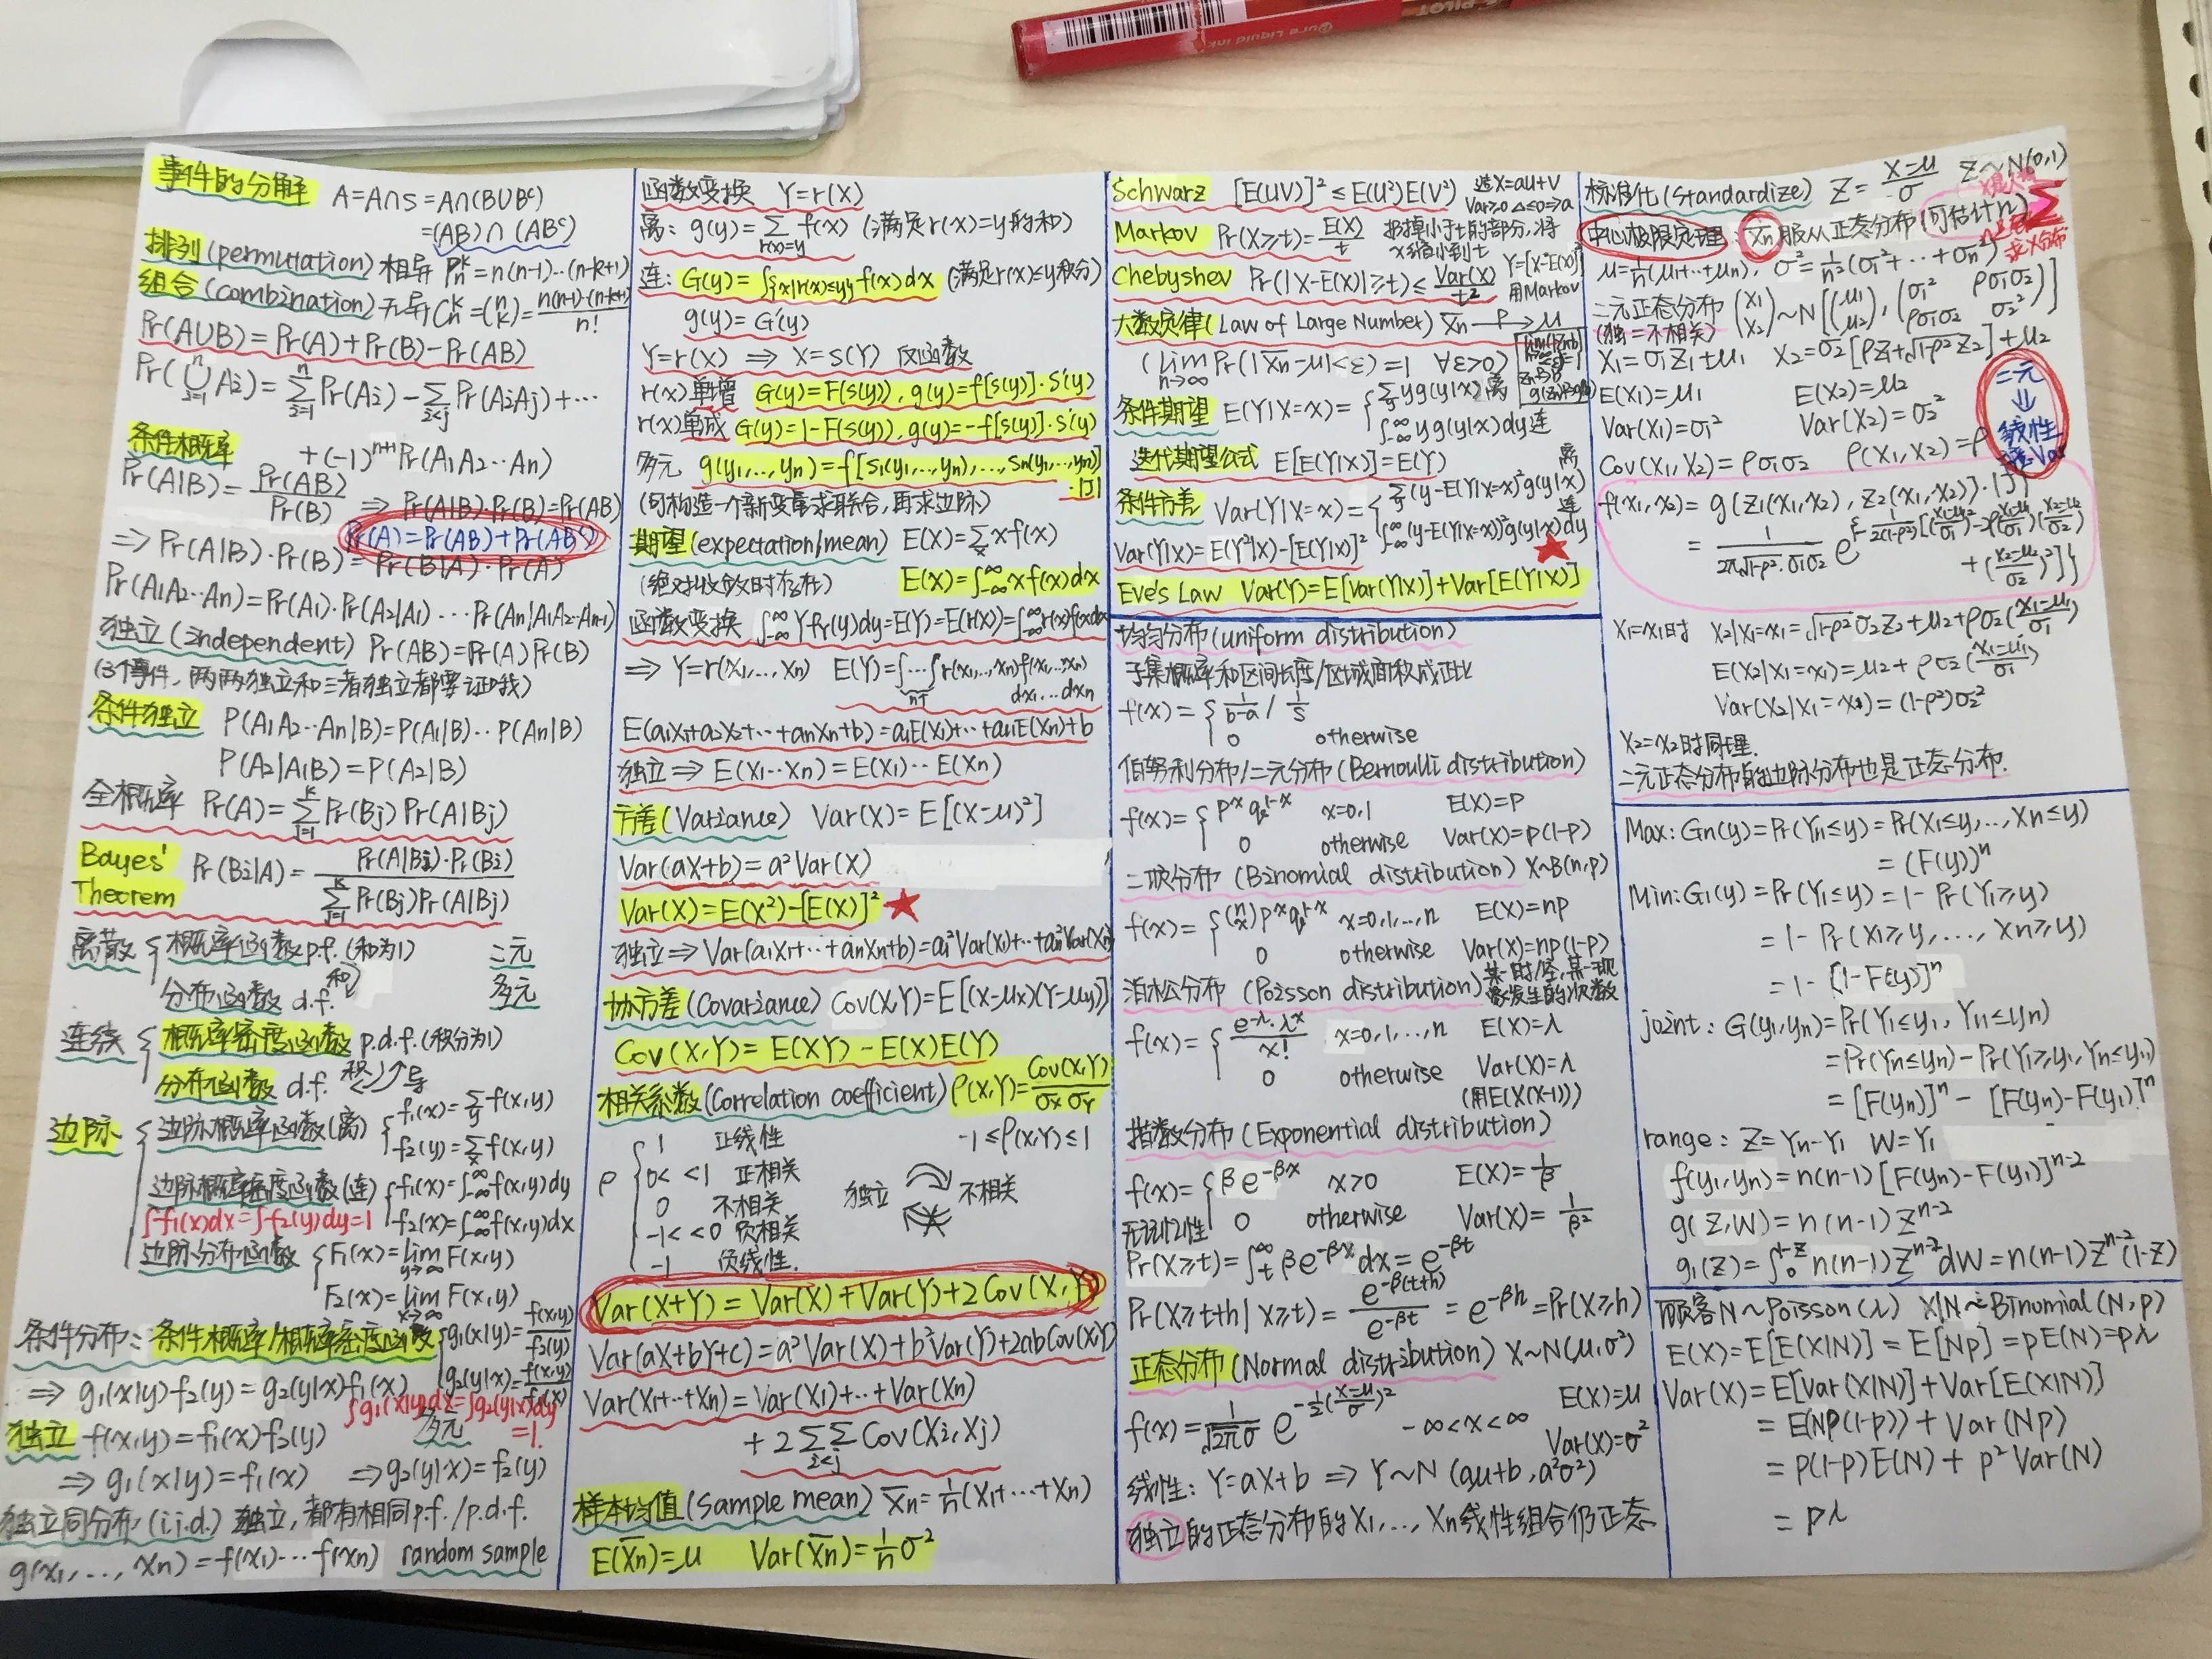 事件的分解 A=A∩S=A∩(B∪Bᶜ)
=(AB)∩(ABᶜ)
排列(permutation) 相异 Pₙᵏ=n(n-1)···(n-k+1)
组合(combination) 无异 Cₙᵏ=(ⁿₖ)=n(n-1)···(n-k+1)/n!
Pr(A∪B)=Pr(A)+Pr(B)-Pr(AB)
Pr(⋃ᵢ₌₁ⁿAi)=∑ᵢ₌₁ⁿPr(Ai)-∑ᵢ<ⱼPr(AiAj)+···
+(-1)ⁿ⁺¹Pr(A₁A₂···An)
条件概率
Pr(A|B)=Pr(AB)/Pr(B) ⇒ Pr(A|B)·Pr(B)=Pr(AB)
Pr(A)=Pr(AB)+Pr(ABᶜ)
⇒ Pr(A|B)·Pr(B)=Pr(B|A)·Pr(A)
Pr(A₁A₂···An)=Pr(A₁)·Pr(A₂|A₁)···Pr(An|A₁A₂···An-₁)
独立(independent) Pr(AB)=Pr(A)Pr(B)
(3个事件,两两独立和三者独立都要证明哦)
条件独立 P(A₁A₂···An|B)=P(A₁|B)···P(An|B)
P(A₂|A₁B)=P(A₂|B)
全概率 Pr(A)=∑ⱼ₌₁ᵏPr(Bj)Pr(A|Bj)
Bayes' Theorem Pr(Bi|A)=Pr(A|Bi)·Pr(Bi)/∑ⱼ₌₁ᵏPr(Bj)Pr(A|Bj)
离散 { 概率函数p.f.(和为1) 二元
分布函数 d.f. 和 多元
连续 { 概率密度函数 p.d.f.(积分为1)
分布函数 d.f. 积 导
边际 { 边际概率函数(离) { f₁(x)=∑f(x,y)
f₂(y)=∑f(x,y)
边际概率密度函数(连) { f₁(x)=∫₋∞^∞f(x,y)dy
∫f₁(x)dx=∫f₂(y)dy=1 f₂(x)=∫₋∞^∞f(x,y)dx
边际分布函数 { F₁(x)=lim y→∞ F(x,y)
F₂(x)=lim x→∞ F(x,y)
条件分布:条件概率/概率密度函数 { g₁(x|y)=f(x,y)/f₂(y)
g₂(y|x)=f(x,y)/f₁(x)
⇒ g₁(x|y)f₂(y)=g₂(y|x)f₁(x)
∫g₁(x|y)dx=∫g₂(y|x)dy=1.
独立 f(x,y)=f₁(x)f₂(y) 多元
⇒ g₁(x|y)=f₁(x) ⇒g₂(y|x)=f₂(y)
独立同分布(i.i.d.) 独立,都有相同p.f./p.d.f.
g(x₁,...,xn)=f(x₁)···f(xn) random sample
函数变换 Y=r(X)
离: g(y)=∑ r(x)=y f(x) (满足r(x)=y的和)
连: G(y)=∫{x|r(x)≤y}f(x)dx (满足r(x)≤y积分)
g(y)=G'(y)
Y=r(X) ⇒ X=s(Y) 反函数
r(x)单增 G(y)=F(s(y)), g(y)=f[s(y)]·s'(y)
r(x)单减 G(y)=1-F(s(y)), g(y)=-f[s(y)]·s'(y)
多元 g(y₁,...,yn)=f[s₁(y₁,...,yn),...,sn(y₁,...,yn)]
·|J|
(可构造一个新变量求联合,再求边际)
期望(expectation/mean) E(X)=∑xf(x)
(绝对收敛时存在) E(X)=∫₋∞^∞xf(x)dx
函数变换 ∫₋∞^∞Yfr(y)dy=E(Y)=E(r(X))=∫₋∞^∞r(x)f(x)dx
⇒ Y=r(X₁,...,Xn) E(Y)=∫···∫r(x₁,...,xn)f(x₁,...,xn)
n个 dx₁...dxn
E(a₁X₁+a₂X₂+···+anXn+b)=a₁E(X₁)+···+anE(Xn)+b
独立⇒E(X₁···Xn)=E(X₁)···E(Xn)
方差(Variance) Var(X)=E[(X-μ)²]
Var(aX+b)=a²Var(X)
Var(X)=E(X²)-[E(X)]² ★
独立⇒Var(a₁X₁+···+anXn+b)=a₁²Var(X₁)+···+an²Var(Xn)
协方差(Covariance) Cov(X,Y)=E[(X-μx)(Y-μy)]
Cov(X,Y)=E(XY)-E(X)E(Y)
相关系数(Correlation coefficient) ρ(X,Y)=Cov(X,Y)/σxσY
ρ { 1 正线性 -1≤ρ(X,Y)≤1
0< <1 正相关
0 不相关 独立 不相关
-1< <0 负相关
-1 负线性.
Var(X+Y)=Var(X)+Var(Y)+2Cov(X,Y)
Var(aX+bY+c)=a²Var(X)+b²Var(Y)+2abCov(X,Y)
Var(X₁+···+Xn)=Var(X₁)+···+Var(Xn)
+2∑∑ i<j Cov(Xi,Xj)
样本均值(Sample mean) X̄n=1/n(X₁+···+Xn)
E(X̄n)=μ Var(X̄n)=1/n σ²
Schwarz [E(UV)]²≤E(U²)E(V²) 造X=aU+V
Var≥0 Δ≤0⇒a
Markov Pr(X≥t)=E(X)/t 扔掉小于t的部分,将
x缩小到t
Chebyshev Pr(|X-E(X)|≥t)≤Var(X)/t² Y=[X-E(X)]²
用Markov
大数定律(Law of Large Number) X̄n —P→ μ
(lim n→∞ Pr(|X̄n-μ|<ε)=1 ∀ε>0)
条件期望 E(Y|X=x)= { ∑yg(y|x) 离
∫₋∞^∞yg(y|x)dy 连
迭代期望公式 E[E(Y|X)]=E(Y)
条件方差 Var(Y|X=x)= { ∑(y-E(Y|X=x))²g(y|x) 离
∫₋∞^∞(y-E(Y|X=x))²g(y|x)dy 连
Var(Y|X)=E(Y²|X)-[E(Y|X)]² ★
Eve's Law Var(Y)=E[Var(Y|X)]+Var[E(Y|X)]
均匀分布(uniform distribution)
子集概率和区间长度/区域面积成正比
f(x)= { 1/b-a / 1/S
0 otherwise
伯努利分布/二元分布(Bernoulli distribution)
f(x)= { pˣq¹⁻ˣ x=0,1 E(X)=p
0 otherwise Var(X)=p(1-p)
二项分布(Binomial distribution) X~B(n,p)
f(x)= { (ⁿₓ)pˣq¹⁻ˣ x=0,1,...,n E(X)=np
0 otherwise Var(X)=np(1-p)
泊松分布(Poisson distribution) 某一时/空,某一现
象发生的次数
f(x)= { e⁻λ·λˣ/x! x=0,1,...,n E(X)=λ
0 otherwise Var(X)=λ
(用E(X(X-1)))
指数分布(Exponential distribution)
f(x)= { βe⁻βˣ x>0 E(X)=1/β
0 otherwise Var(X)=1/β²
无记忆性
Pr(X≥t)=∫ₜ^∞βe⁻βˣdx=e⁻βᵗ
Pr(X≥t+h|X≥t)=e^-β(t+h)/e^-βt=e^-βh=Pr(X≥h)
正态分布(Normal distribution) X~N(μ,σ²)
f(x)=1/√2πσ e^-½(x-μ/σ)² -∞<x<∞ E(X)=μ
Var(X)=σ²
线性: Y=aX+b ⇒ Y~N(aμ+b,a²σ²)
独立的正态分布的X₁,...,Xn线性组合仍正态
标准化(Standardize) Z=X-μ/σ Z~N(0,1)
中心极限定理: X̄n服从正态分布(可估计n)
μ=1/n(μ₁+···+μn), σ²=1/n²(σ₁²+···+σn²)
二元正态分布 (X₁ X₂)~N[(μ₁ μ₂),(σ₁² ρσ₁σ₂ ρσ₁σ₂ σ₂²)]
(独=不相关)
X₁=σ₁Z₁+μ₁ X₂=σ₂[ρZ₁+√1-ρ²Z₂]+μ₂
E(X₁)=μ₁ E(X₂)=μ₂
Var(X₁)=σ₁² Var(X₂)=σ₂²
Cov(X₁,X₂)=ρσ₁σ₂ ρ(X₁,X₂)=ρ
二元
⇓
线性
f(x₁,x₂)=g(z₁(x₁,x₂),z₂(x₁,x₂))·|J|
=1/2π√1-ρ²·σ₁σ₂ e^{-1/2(1-ρ²)[(x₁-μ₁/σ₁)²-2ρ(x₁-μ₁/σ₁)(x₂-μ₂/σ₂)
+(x₂-μ₂/σ₂)²]}
X₁=x₁时 X₂|X₁=x₁=√1-ρ²σ₂Z₂+μ₂+ρσ₂(x₁-μ₁/σ₁)
E(X₂|X₁=x₁)=μ₂+ρσ₂(x₁-μ₁/σ₁)
Var(X₂|X₁=x₁)=(1-ρ²)σ₂²
X₂=x₂时同理.
二元正态分布的边际分布也是正态分布.
Max: Gn(y)=Pr(Yn≤y)=Pr(X₁≤y,...,Xn≤y)
=(F(y))ⁿ
Min: G₁(y)=Pr(Y₁≤y)=1-Pr(Y₁≥y)
=1-Pr(X₁≥y,...,Xn≥y)
=1-[1-F(y)]ⁿ
joint: G(y₁,yn)=Pr(Y₁≤y₁,Yn≤yn)
=Pr(Yn≤yn)-Pr(Y₁≥y₁,Yn≤yn)
=[F(yn)]ⁿ-[F(yn)-F(y₁)]ⁿ
range: Z=Yn-Y₁ W=Y₁
f(y₁,yn)=n(n-1)[F(yn)-F(y₁)]ⁿ⁻²
g(Z,W)=n(n-1)Zⁿ⁻²
g₁(Z)=∫₀¹⁻ᶻn(n-1)Zⁿ⁻²dW=n(n-1)Zⁿ⁻²(1-Z)
顾客N~Poisson(λ) X|N~Binomial(N,p)
E(X)=E[E(X|N)]=E[Np]=pE(N)=pλ
Var(X)=E[Var(X|N)]+Var[E(X|N)]
=E(Np(1-p))+Var(Np)
=p(1-p)E(N)+p²Var(N)
=pλ
PILOT
Pure Liquid Ink